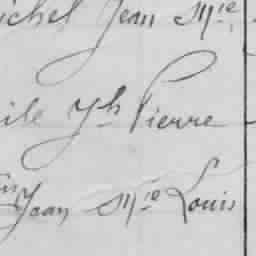 ichel Jean Mie
ile Jh Pierre
Jean Mie Louis